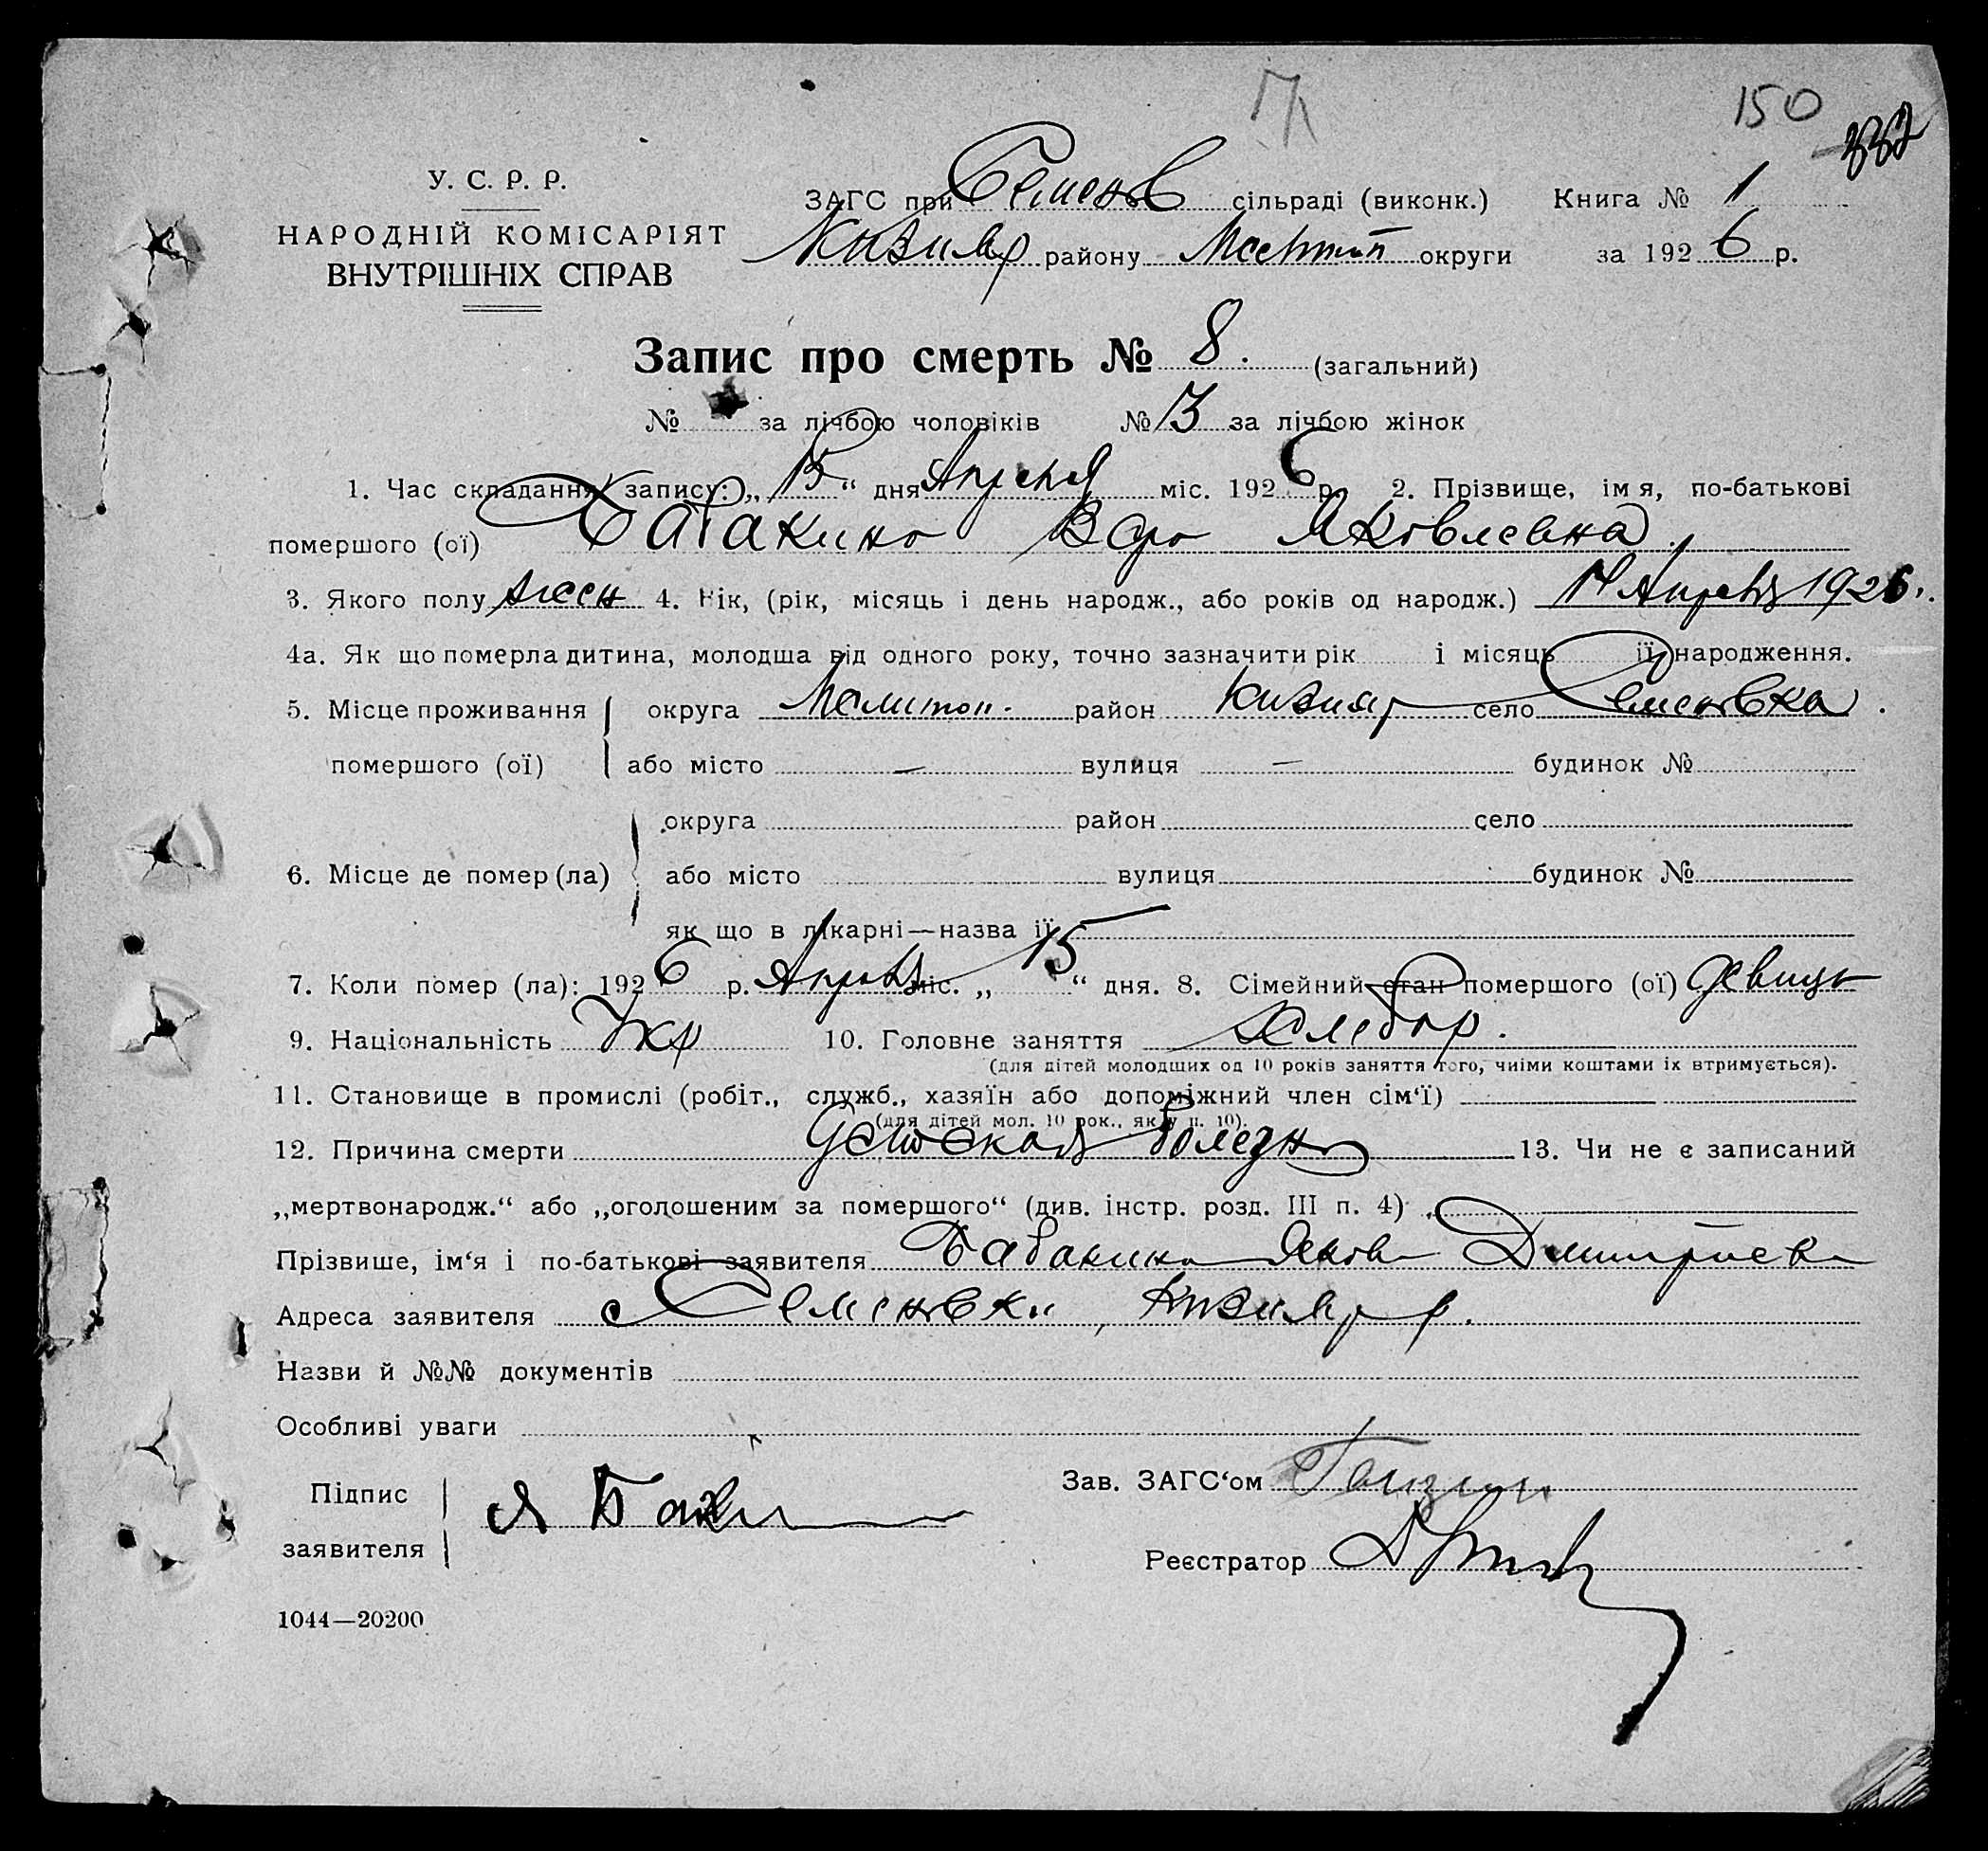 150
У. С. Р. Р.
НАРОДНІЙ КОМІСАРІЯТ
ВНУТРІШНІХ СПРАВ
ЗАГС при Семенов сільраді (виконк.) Книга № 1
Кизияр району Мелітоп округи за 1926 р.
Запис про смерть № 8. (загальний)
№ за лічбою чоловіків № 3 за лічбою жінок
1. Час складання запису: „15“ дня Апреля міс. 1926 р. 2. Прізвище, імя, по-батькові
помершого (ої) Бабакина Вера Яковлевна
3. Якого полу женск 4. Вік, (рік, місяць і день народж., або років од народж.) Апреля 1926.
4а. Як що померла дитина, молодша від одного року, точно зазначити рік і місяць її народження.
5. Місце проживання округа Мелитоп. район Кизияр село Семеновка.
помершого (ої) або місто — вулиця — будинок №
округа район село
6. Місце де помер (ла) або місто вулиця будинок №
як що в лікарні—назва її
7. Коли помер (ла): 1926 р. Апреля міс. „15“ дня. 8. Сімейний стан помершого (ої) девица
9. Національність Укр 10. Головне заняття хлебор.
(для дітей молодших од 10 років заняття того, чиїми коштами їх втримується).
11. Становище в промислі (робіт., служб., хазяїн або допоміжний член сім‘ї)
(для дітей мол. 10 рок., як у п. 10).
12. Причина смерти Детская болезнь 13. Чи не є записаний
„мертвонародж.“ або „оголошеним за помершого“ (див. інстр. розд. III п. 4)
Прізвише, ім‘я і по-батькові заявителя Бабакина Якова Дмитриева
Адреса заявителя с Семеновки, Кизияр р.
Назви й №№ документів
Особливі уваги
Підпис
заявителя
Зав. ЗАГС‘ом
Реєстратор
1044—20200